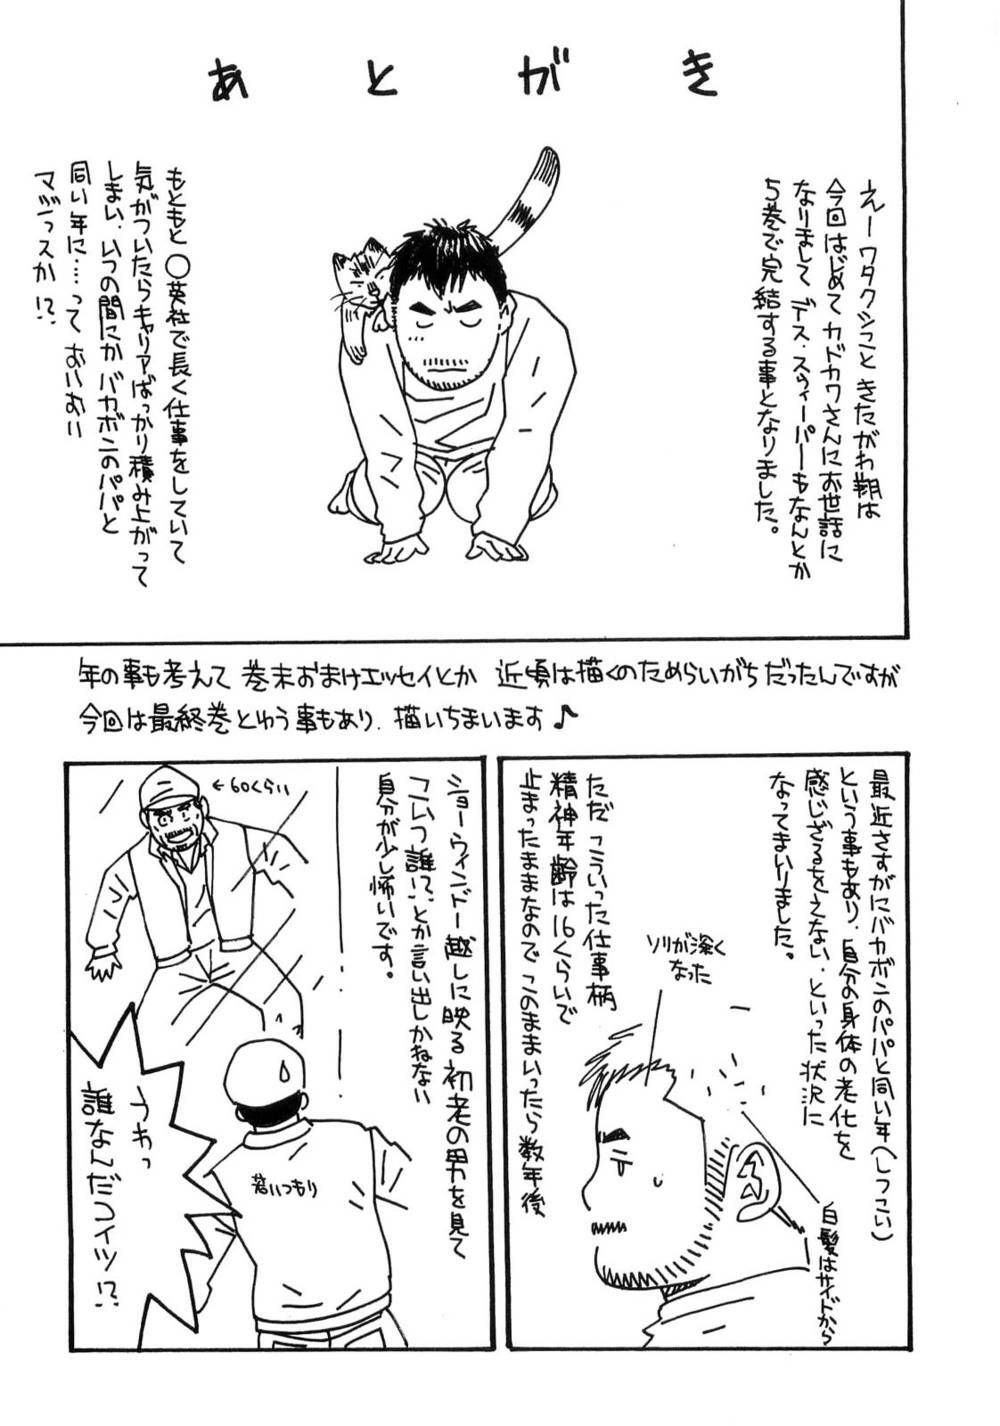 あとがき
えーワタクシことときたがわ翔は
今回はじめてカドカワさんにお世話に
なりまして デス・スウィーパーもなんとか
5巻で完結する事となりました。
もともと〇英社で長く仕事をしていて
気がついたらキャリアばっかり積み上がって
しまい、いつの間にかバカボンのパパと
同い年に……って おいおい
マジっスか!?
年の事も考えて 巻末おまけエッセイとか 近頃は描くのためらいがちだったんですが
今回は最終巻とゆう事もあり、描いちまいます♪
最近さすがにバカボンのパパと同い年(しつこい)
という事もあり、自分の身体の老化を
感じざるをえない、といった状況に
なってまいりました。
ソリが深く
なった
白髪はサイドから
ただ こういった仕事柄
精神年齢は16くらいで
止まったままなので このままいったら数年後
ショーウィンドー越しに映る初老の男を見て
コいつ誰!?とか言い出しかねない
自分が少し怖いです。
←60くらい
若いつもり
うわっ
誰なんだコイツ!?